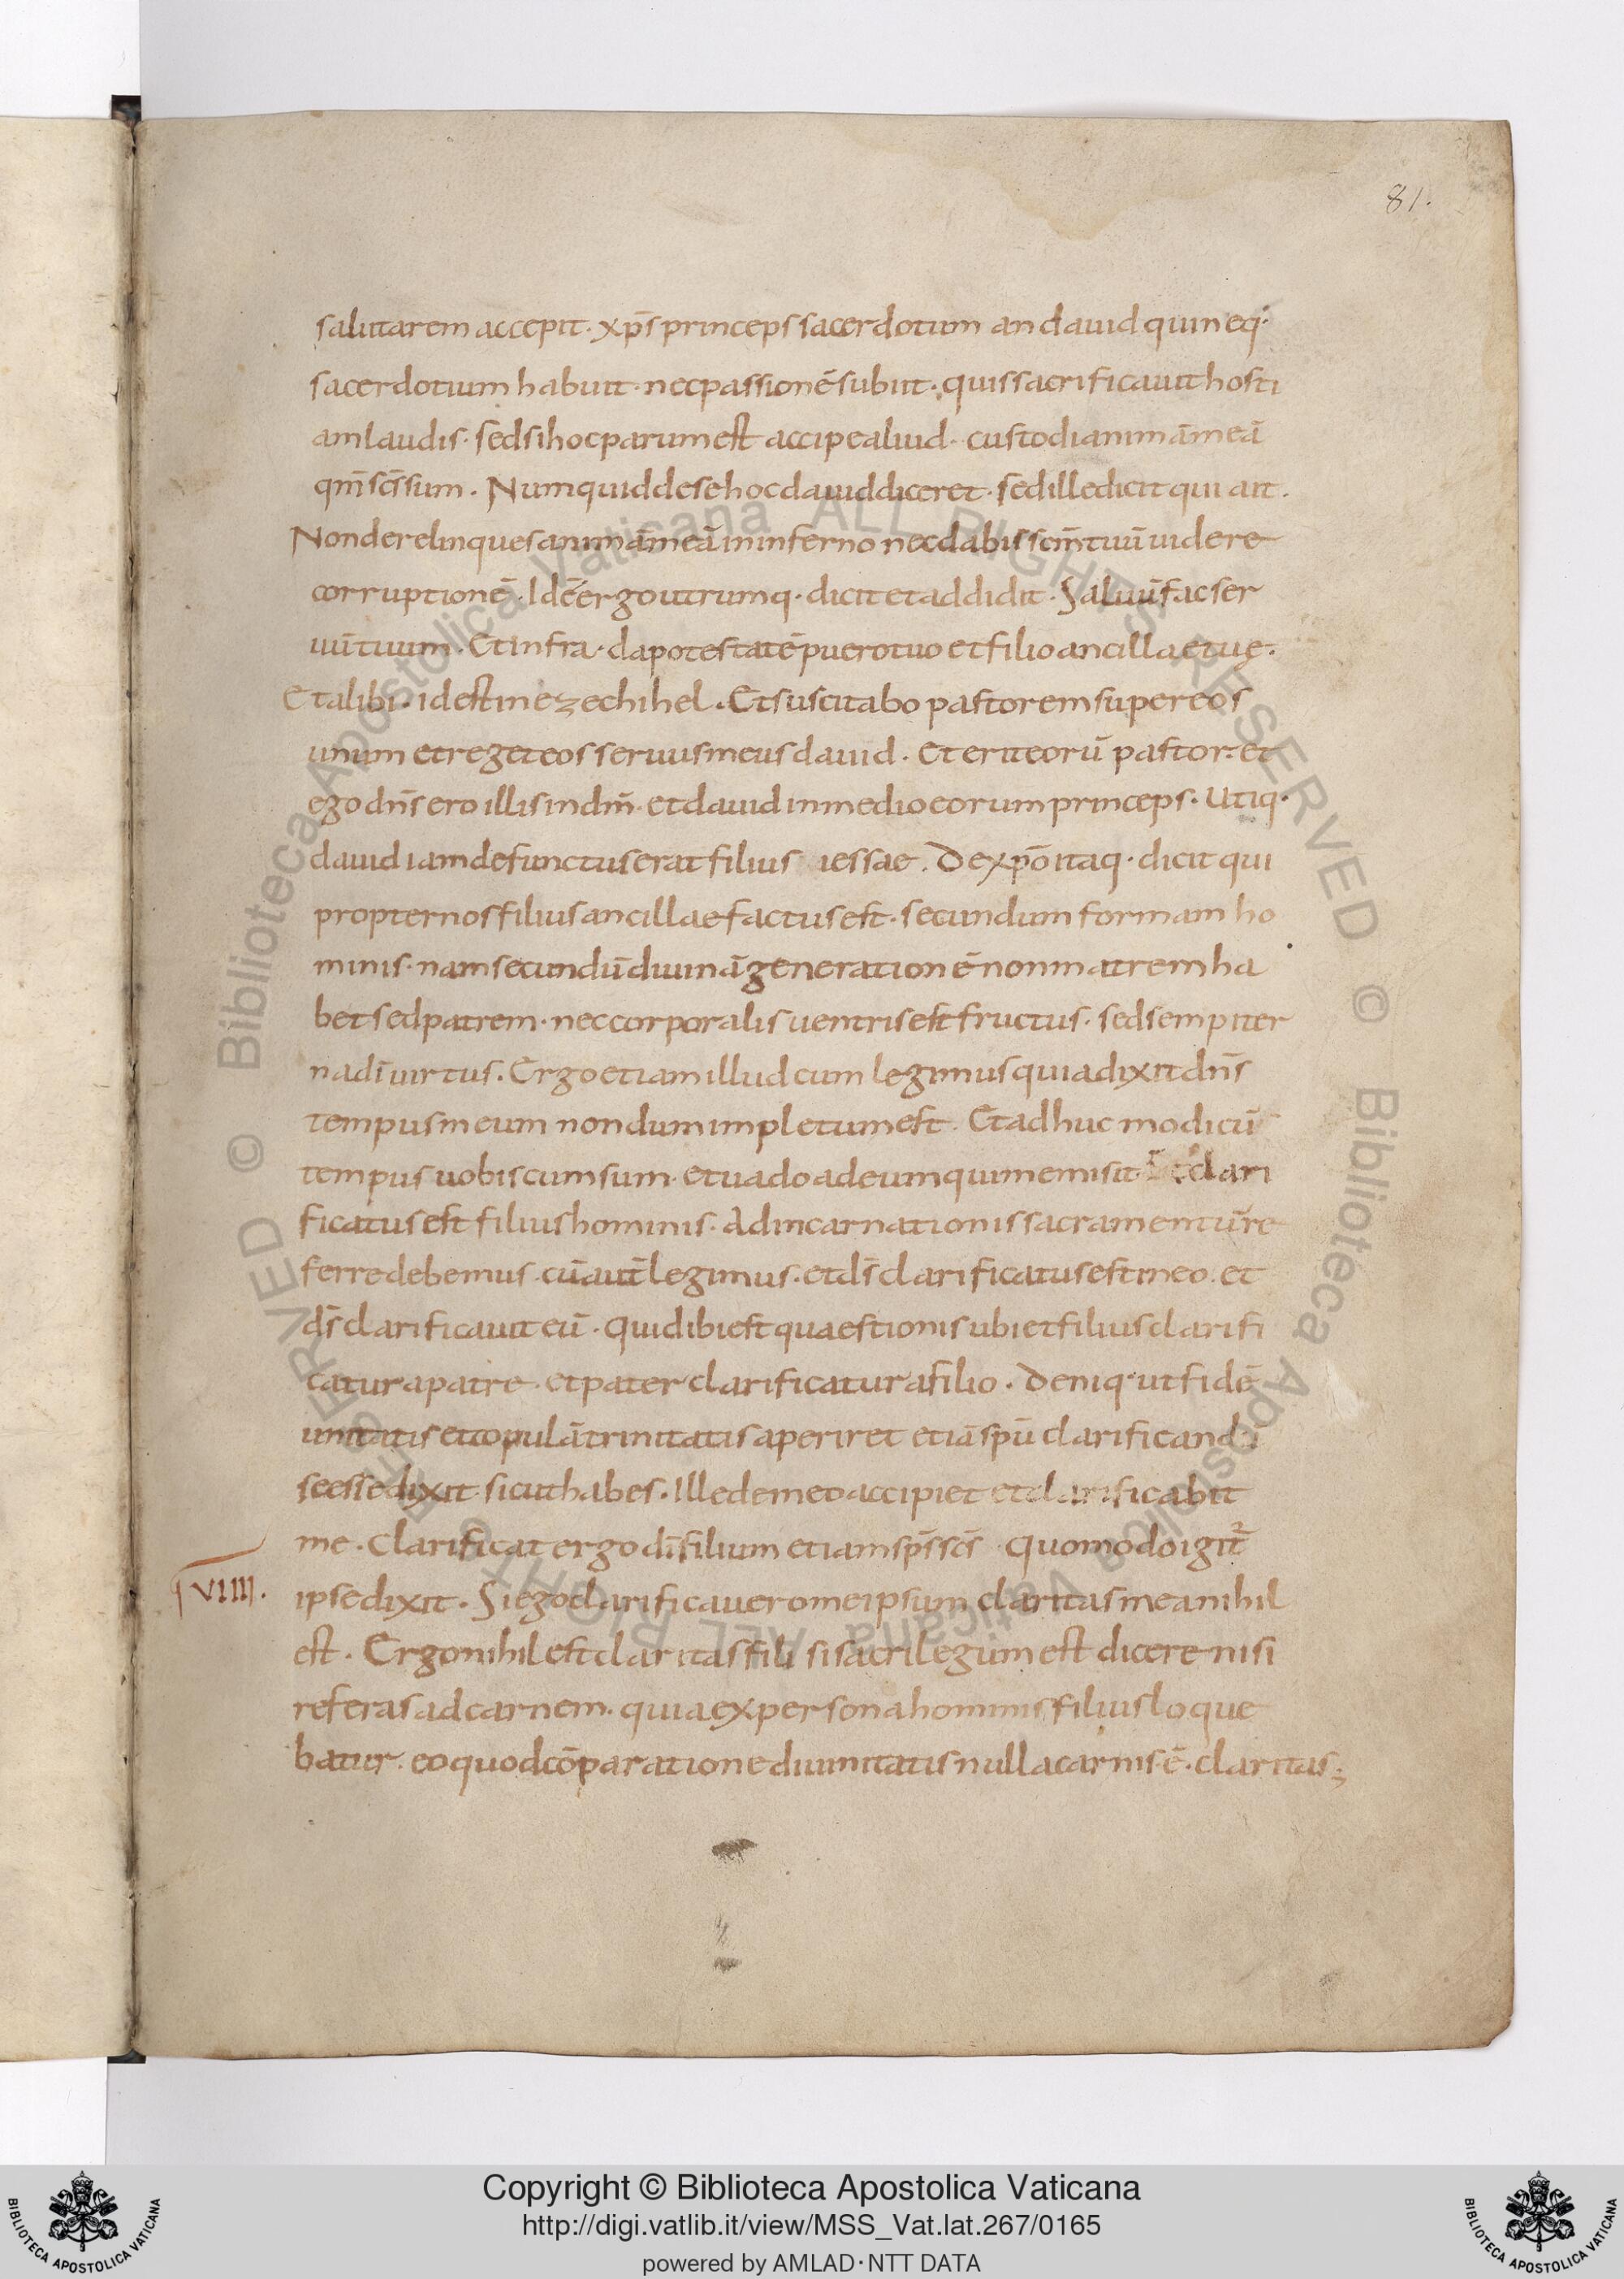 81.
salutarem accepit· xp̄s princeps sacerdotum an dauid qui neq·
sacerdotium habuit· nec passionē subiit· quis sacrificauit hosti
am laudis· sed si hoc parum est accipe aliud· custodi animā meā
qm̄ scs̄ sum. Numquid de se hoc dauid diceret· sed ille dicit qui ait.
Non derelinques animā meā in inferno nec dabis scm̄ tuū uidere
corruptionē. Idē ergo utrumq· dicit et addidit· Saluū fac ser
uū tuum. Et infra· da potestatē puero tuo et filio ancillae tuę.
Et alibi· id est in ezechihel. Et suscitabo pastorem super eos
unum et reget eos seruus meus dauid. Et erit eorū pastor· et
ego dn̄s ero illis in dm̄· et dauid in medio eorum princeps· Utiq·
dauid iam defunctus erat filius iessae. De xp̄o itaq· dicit qui
propter nos filius ancillae factus est· secundum formam ho
minis· nam secundū diuinā generationē non matrem ha
bet sed patrem· nec corporalis uentris est fructus· sed sempiter
na dī uirtus. Ergo etiam illud cum legimus quia dixit dn̄s
tempus meum nondum impletum est. Et adhuc modicū
tempus uobiscum sum· et uado ad eum qui me misit· Et clari
ficatus est filius hominis· Ad incarnationis sacramentū re
ferre debemus· cū aut̄ legimus· et ds̄ clarificatus est in eo· et
ds̄ clarificauit eū· Quid ibi est quaestionis ubi et filius clarifi
catur a patre· et pater clarificatur a filio. Deniq· ut fidē
unitatis et copulā trinitatis aperiret etiā spū clarificand
se esse dixit sicut habes. Ille de meo accipiet et clarificabit
me. Clarificat ergo dī filium etiam sps̄ scs̄ Quomodo igit̄
VIIII.
ipse dixit. Si ego clarificauero me ipsum claritas mea nihil
est. Ergo nihil est claritas fili si sacrilegium est dicere nisi
referas ad carnem· quia ex persona hominis filius loque
batur· eo quod cōparatione diuinitatis nulla carnis·ē· claritas;
Copyright © Biblioteca Apostolica Vaticana
http://digi.vatlib.it/view/MSS_Vat.lat.267/0165
powered by AMLAD·NTT DATA
BIBLIOTECA APOSTOLICA VATICANA
BIBLIOTECA APOSTOLICA VATICANA